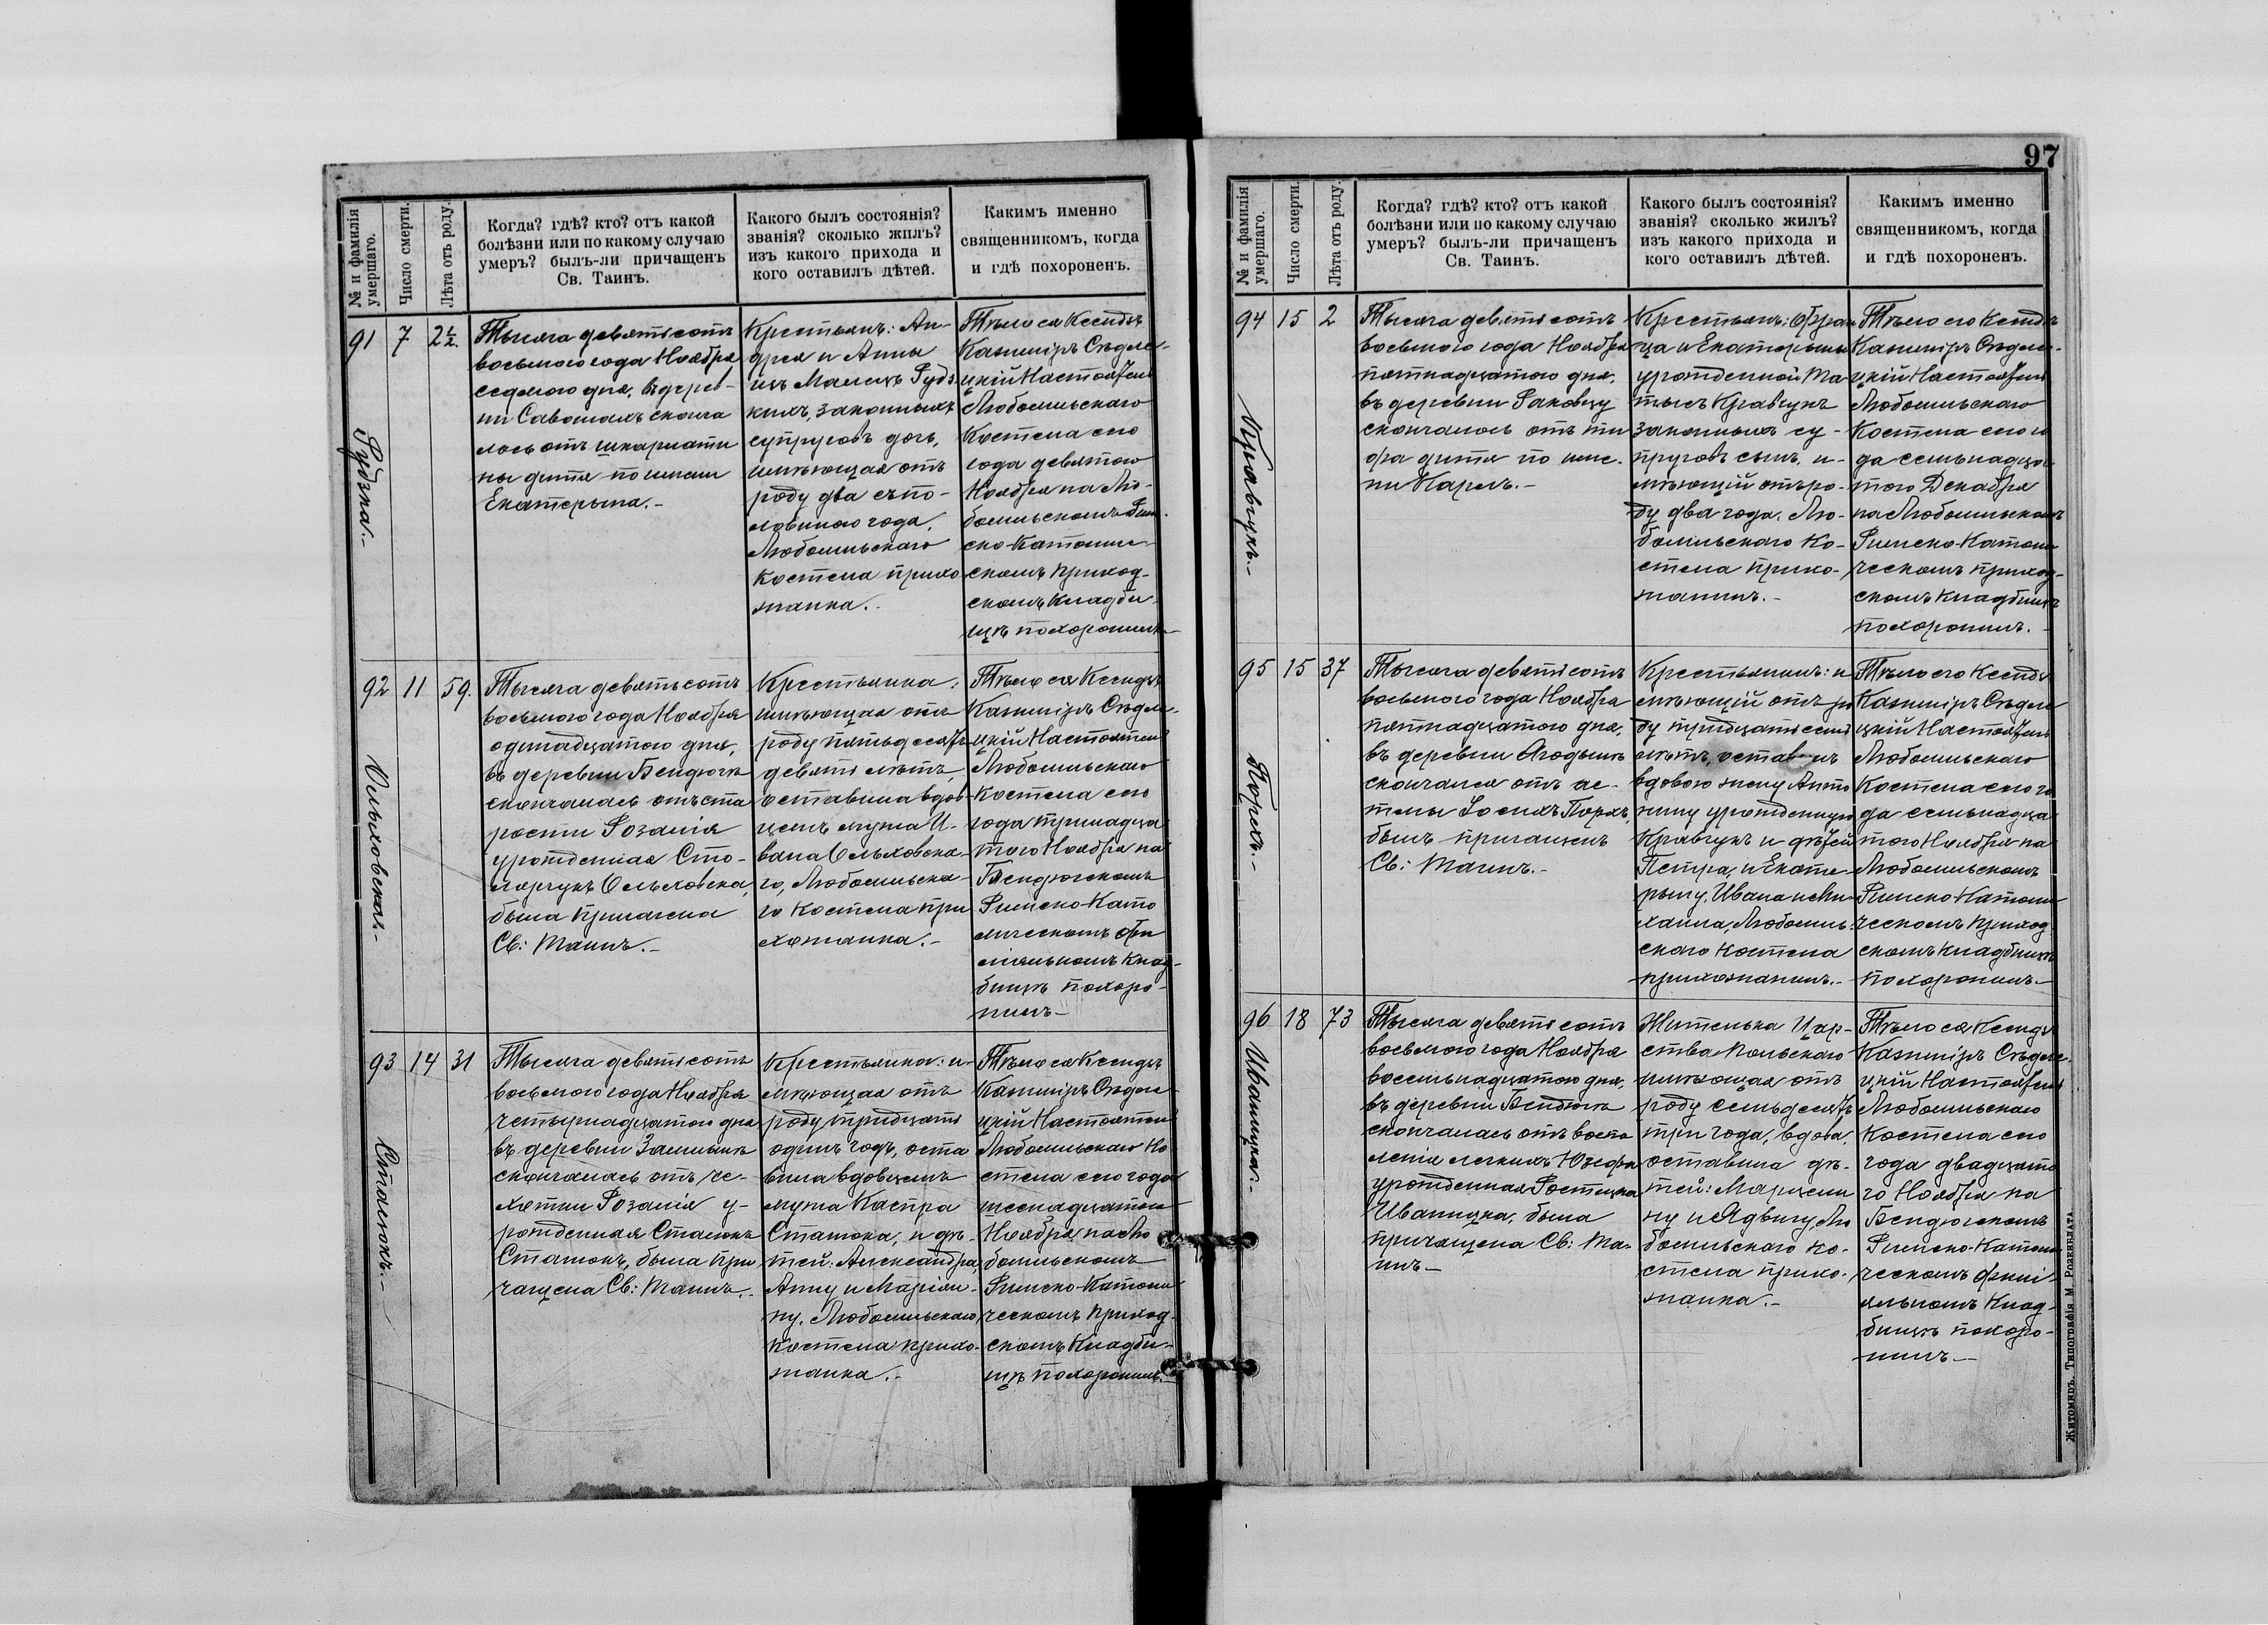 97
№ и фамилія умершаго.
Число смерти.
Лѣта отъ роду.
Когда? гдѣ? кто? отъ какой
болѣзни или по какому случаю
умеръ? былъ-ли причащенъ
Св. Таинъ.
Какого былъ состоянія?
званія? сколько жилъ?
изъ какого прихода и
кого оставилъ дѣтей.
Какимъ именно
священникомъ, когда
и гдѣ похороненъ.
91
Рудзка.-
7
2½.
Тысяча девятьсотъ
восьмого года Ноября
седьмого дня, въ дерев-
ни Савошахъ сконча
лось отъ шкарлати
ны дитя по имени
Екатерына.-
Крестьянъ: Ан-
дрея и Анны
изъ Рудз
кихъ, законныхъ
супруговъ дочь,
имѣющая отъ
роду два съ по-
ловиною года.
Любомльскаго
костела прихо
жанка.-
Тѣло ея Ксендзъ
Казиміръ Сѣдле-
цкій Настоятель
Любомльскаго
Костела сего
года девятого
Ноября на Лю-
бомльскомъ Рим-
ско-Католи-
скомъ приход-
скомъ кладби-
щѣ похоронилъ
92
Ольховская.-
11
59.
Тысяча девятьсотъ
восьмого года Ноября
одинадцатого дня,
въ деревни Бендюга
скончалась отъ ста
рости Розалія
урожденная Сто-
лярчукъ Ольховска,
была причащена
Св: Таинъ.-
Крестьянка:
имѣющая отъ
роду пятьдесятъ
девять лѣтъ,
оставила вдов-
цемъ мужа И-
вана Ольховска-
го, Любомльска-
го костела при
хожанка.-
Тѣло ея Ксендзъ
Казиміръ Сѣдле-
цкій Настоятель
Любомльскаго
костела сего
года тринадца
того Ноября на
Бендюгскомъ
Римско-Като
лическомъ фи
ліяльномъ клад-
бищѣ похоро-
нилъ-
93
Сташокъ.-
14
31
Тысяча девятьсотъ
восьмого года Ноября
четырнадцатого дня
въ деревни Замлынѣ
скончалась отъ че-
хотки Розалія у-
рожденная Сташокъ
Сташокъ, была при
чащена Св: Таинъ.-
Крестьянка: и-
мѣющая отъ
роду тридцать
одинъ годъ, оста
вила вдовцемъ
мужа Каспра
Сташока, и дѣ-
тей: Александра,
Анну и Маріян-
ну, Любомльскаго
костела прихо-
жанка.-
Тѣло ея Ксендзъ
Казиміръ Сѣдле
цкій Настоятель
Любомльскаго Ко
стела сего года
шеснадцатого
Ноября на Лю
бомльскомъ
Римско-Католи
ческомъ приход-
скомъ кладби-
щѣ похоронилъ.-
№ и фамилія умершаго.
Число смерти.
Лѣта отъ роду.
Когда? гдѣ? кто? отъ какой
болѣзни или по какому случаю
умеръ? былъ-ли причащенъ
Св. Таинъ.
Какого былъ состоянія?
званія? сколько жилъ?
изъ какого прихода и
кого оставилъ дѣтей.
Какимъ именно
священникомъ, когда
и гдѣ похороненъ.
94
Кравчукъ.-
15
2
Тысяча девятьсотъ
восьмого года Ноября
пятнадцатого дня,
въ деревни Раковцу
скончалось отъ ти
фа дитя по име-
ни Кароль.-
Крестьянъ: Фран
ца и Екатерыны
урожденной Ма-
тысъ Кравчукъ
законныхъ су-
пруговъ сынъ, и-
мѣющій отъ ро-
ду два года. Лю-
бомльскаго Ко-
стела прихо-
жанинъ.-
Тѣло его Ксендзъ
Казиміръ Сѣдле-
цкій Настоятель
Любомльскаго
Костела сего го
да семьнадца
того Декабря
на Любомльскомъ
Римско-Католи
ческомъ приход-
скомъ кладбищѣ
похоронилъ.-
95
Порхъ.-
15
37
Тысяча девятьсотъ
восьмого года Ноября
пятнадцатого дня,
въ деревни Ягодынѣ
скончался отъ ас-
тмы Іосифъ Порхъ,
былъ причащенъ
Св: Таинъ.-
Крестьянинъ: и
мѣющій отъ ро
ду тридцать семь
лѣтъ, оставилъ
вдовою жену Анто
нину урожденную
Кравчукъ и дѣтей
Петра, и Екате
рыну, Ивана и Ми
хаила, Любомль-
скаго костела
прихожанинъ.-
Тѣло его Ксендзъ
Казиміръ Сѣдле
цкій Настоятель
Любомльскаго
Костела сего го
да семьнадца
того Ноября на
Любомльскомъ
Римско-Католи
ческомъ приход
скомъ кладбищѣ
похоронилъ-
96
Иваницка.-
18
73
Тысяча девятьсотъ
восьмого года Ноября
восемьнадцатого дня,
въ деревни Бендюга
скончалась отъ воспа
ленія легкихъ Юзефа
урожденная Ростецка
Иваницка, была
причащена Св: Та-
инъ-
Жителька Цар-
ства Польскаго
имѣющая отъ
роду семьдесятъ
три года, вдова,
оставила дѣ-
тей: Марцели
ну и Ядвигу, Лю
бомльскаго ко-
стела прихо-
жанка.-
Тѣло ея Ксендзъ
Казиміръ Сѣдле-
цкій Настоятель
Любомльскаго
Костела сего
года двадцато
го Ноября на
Бендюгскомъ
Римско-Католи
ческомъ филі-
яльномъ Клад-
бищѣ похоро-
нилъ-
Житомиръ. Типографія М. Розенблата